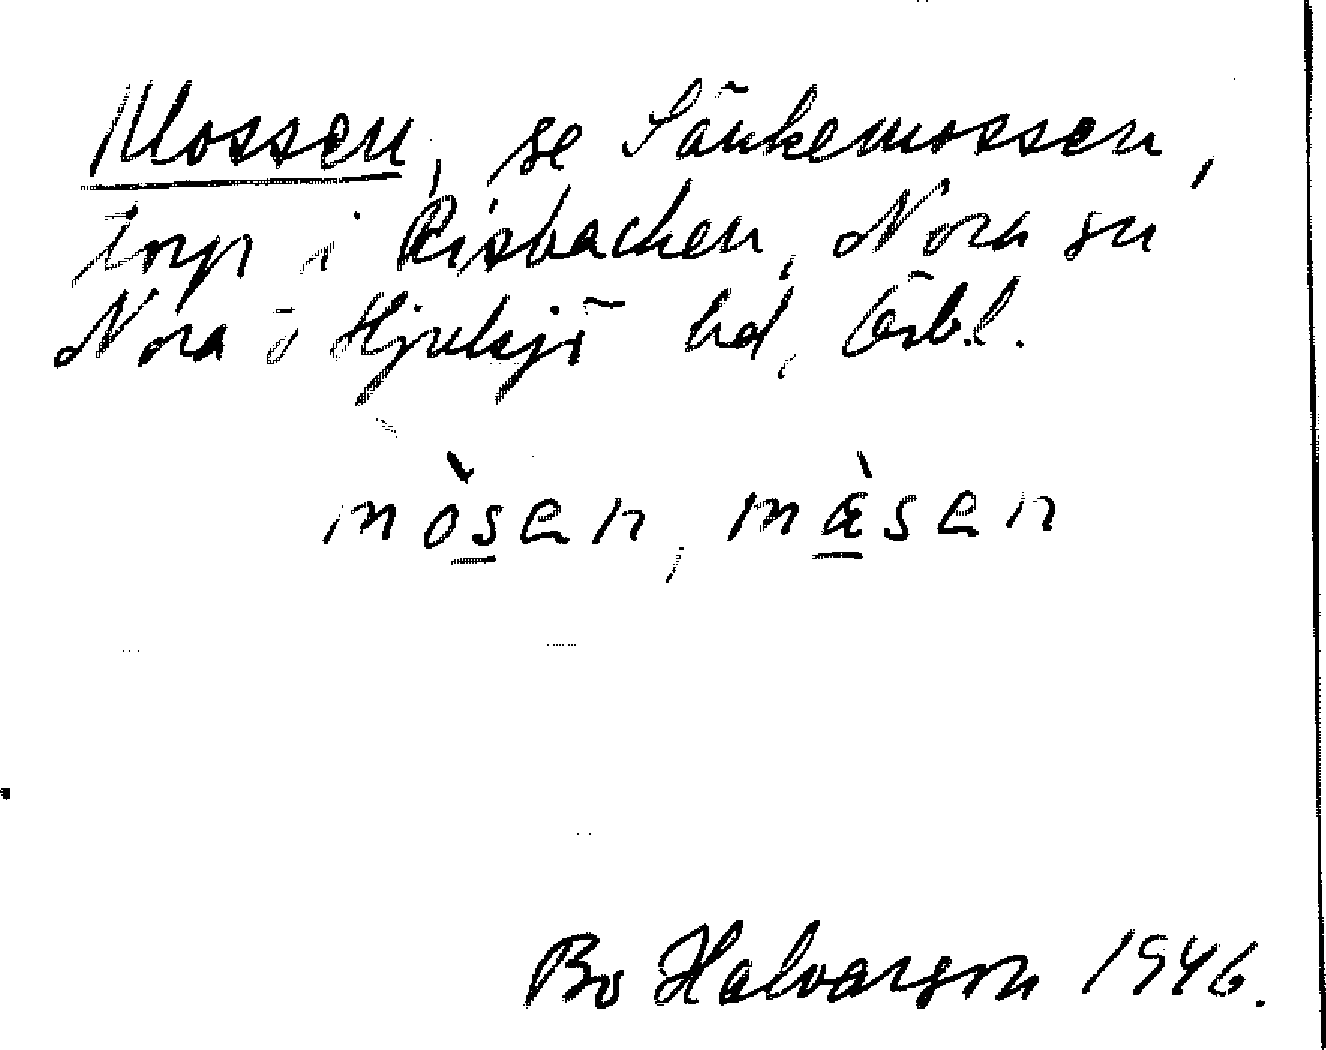 Mossen, se Sänkemossen,
torp i Risbacken, Nora sn
Nora o Hjulsjö hd, Örbl.
mòsen, mæ̀sen
Bo Halvarson 1946.